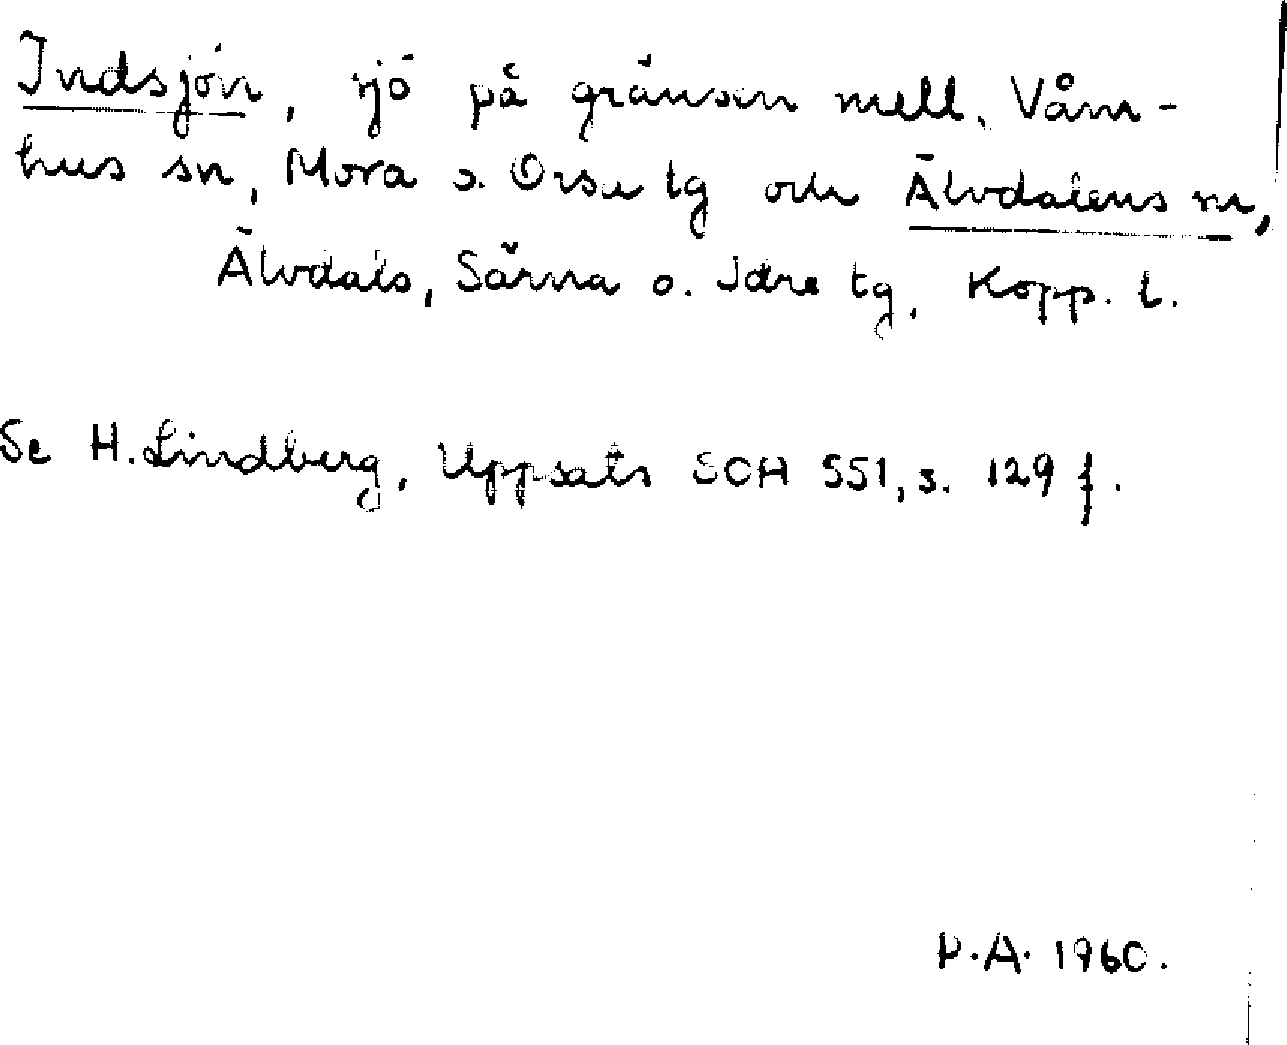 Indsjön, sjö på gränsen mell. Våm-
hus sn, Mora o. Orsa tg och Älvdalens sn,
Älvdals, Särna o. Idre tg, Kopp. l.
Se H. Lindberg, Uppsats SOH 551, s. 129 f.
P.A. 1960.